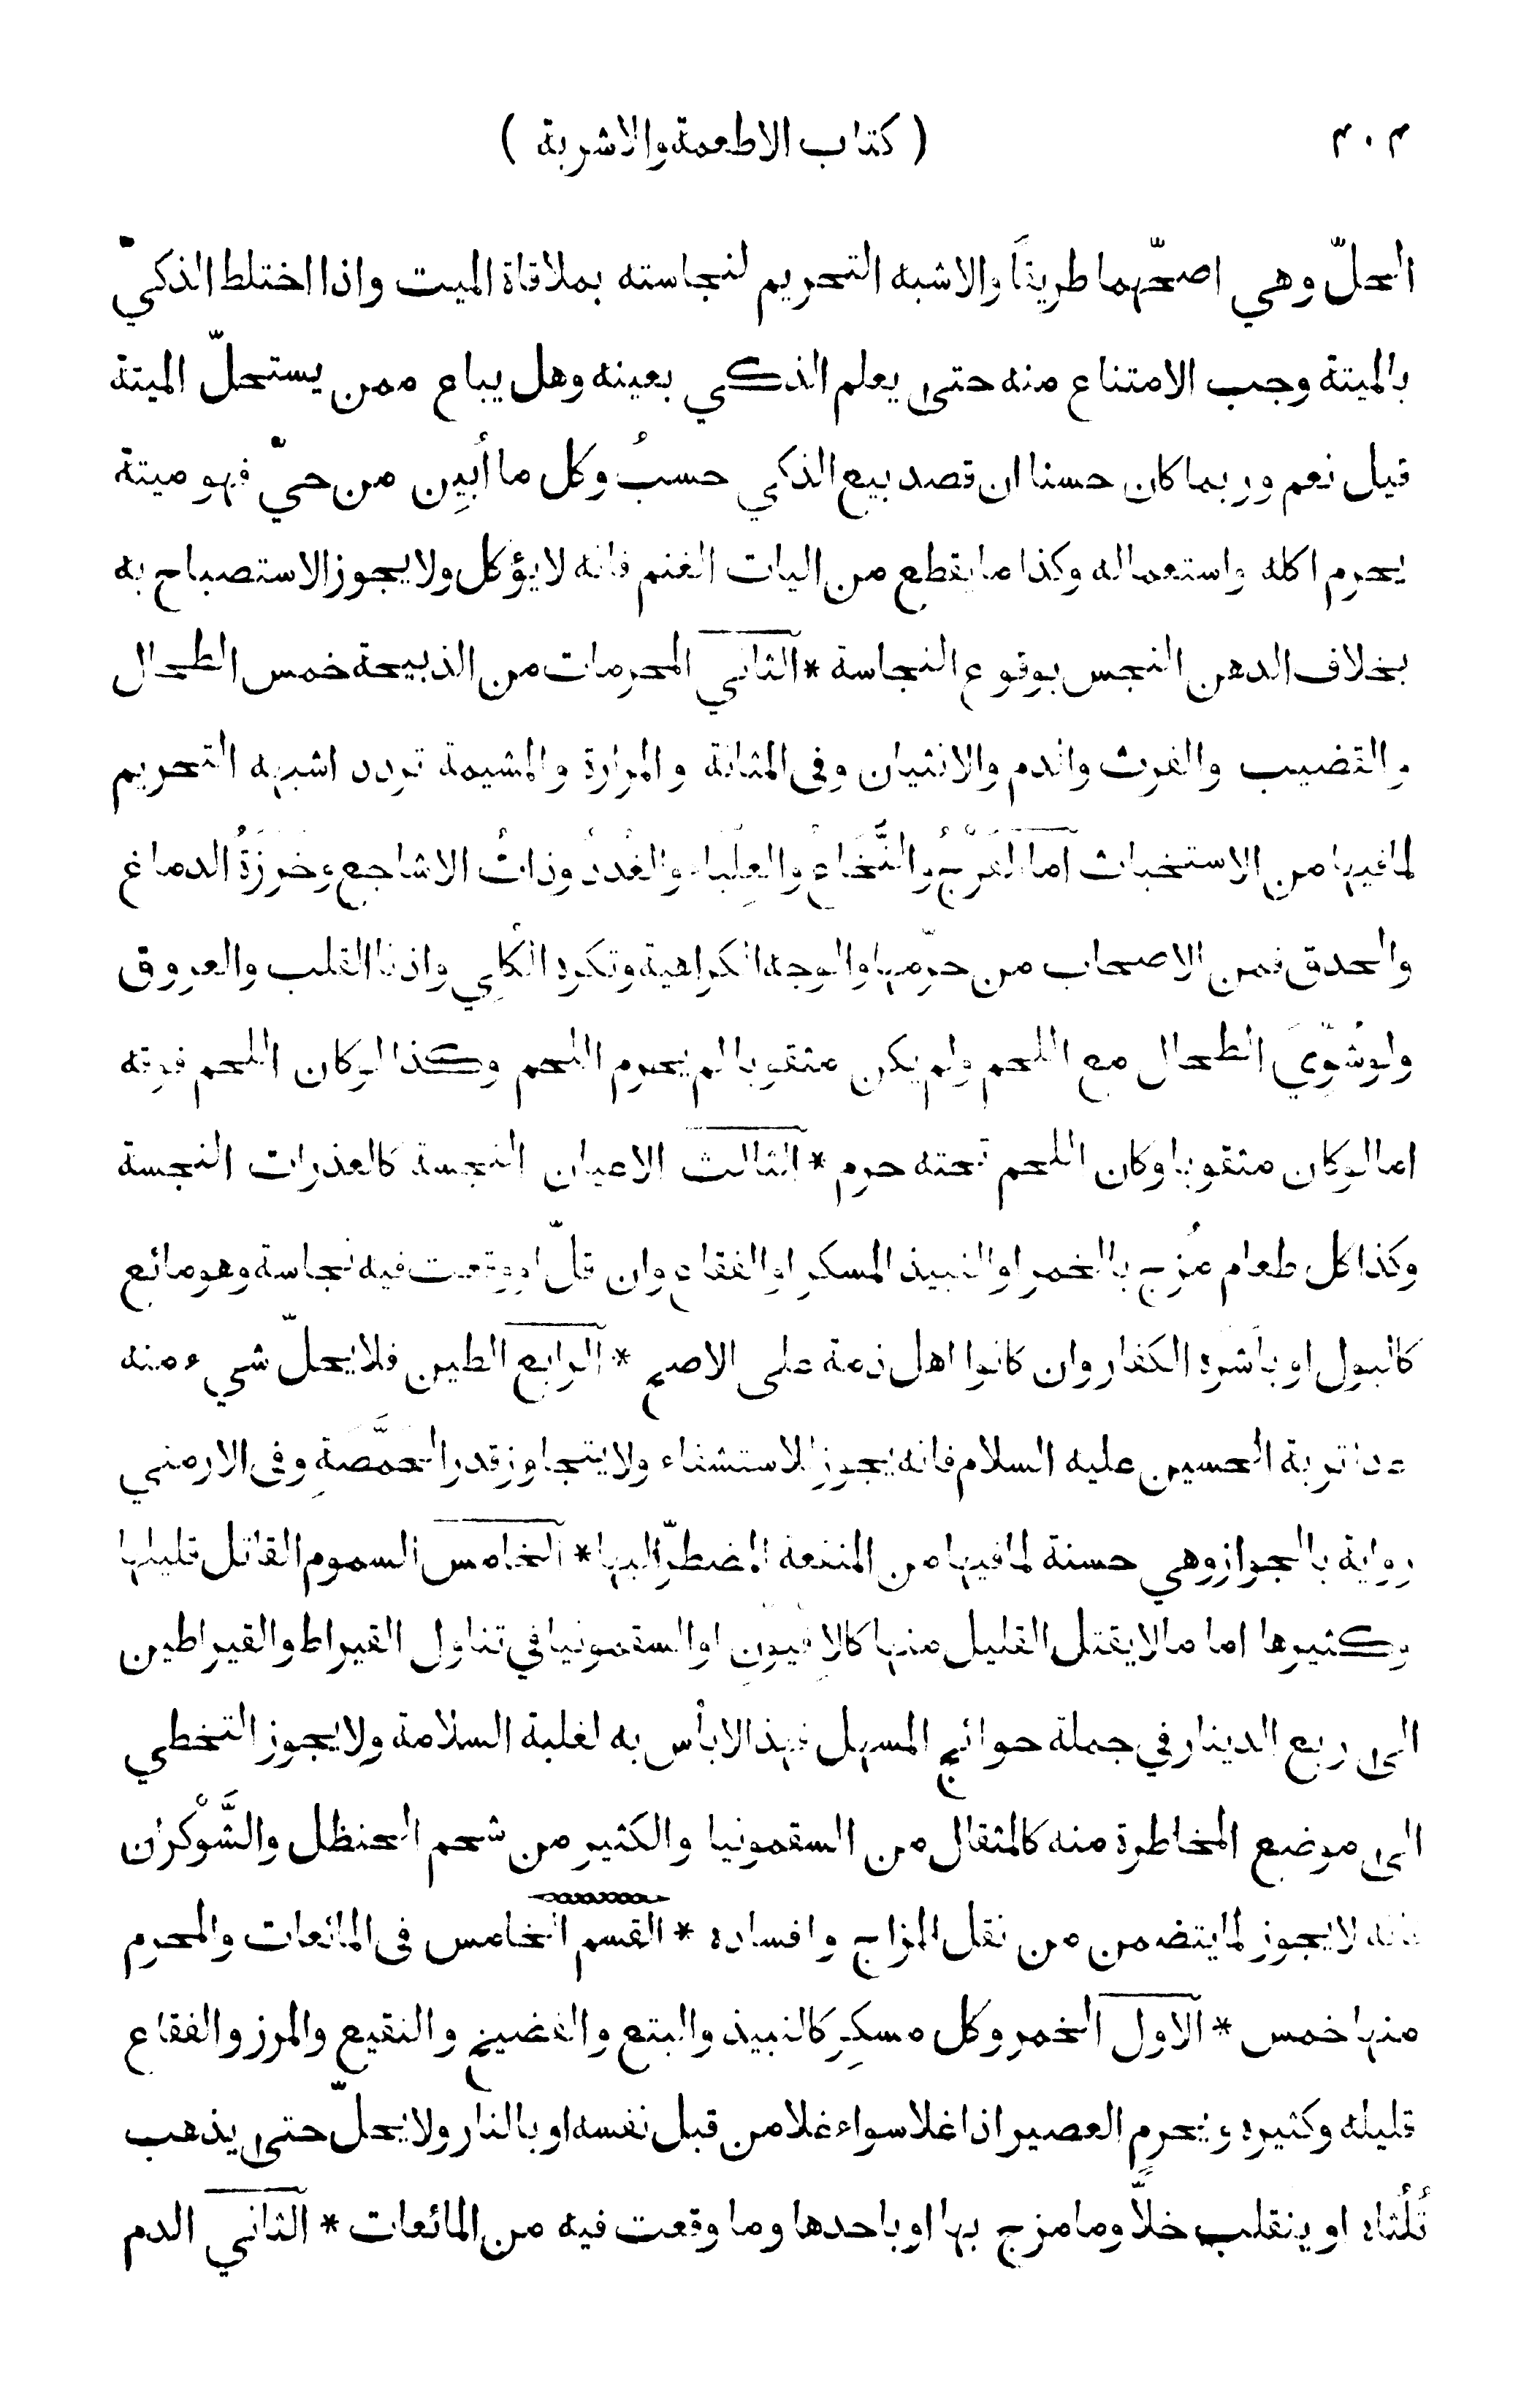 ٣٠٣ ( كتاب الاطعمة والاشربة )
الحلّ وهي اصحّهما طريقاً والاشبه التحريم لنجاسته بملاقاة الميت واذا اختلط الذكيّ
بالميتة وجب الامتناع منه حتى يعلم الذكي بعينه وهل يباع ممن يستحلّ الميتة
قيل نعم وربما كان حسنا ان قصد بيع الذكي حسبُ وكل ما أُبِين من حيّ فهو ميتة
يحرم اكله واستعماله وكذا ما يقطع من اليات الغنم فانه لا يؤكل ولا يجوز الاستصباح به
بخلاف الدهن النجس بوقوع النجاسة * الثاني المحرمات من الذبيحة خمس الطحال
والقضيب والفرث والدم والانثيان وفى المثانة والمرارة والمشيمة تردد اشبهه التحريم
لما فيها من الاستخباث اما الفَرْجُ والنُّخَاعُ والعِلْبَاء والغُددُ وذاتُ الاشاجع وخَرَزَةُ الدماغ
والحدق فمن الاصحاب من حرّمها والوجه الكراهية وتكره الكُلِي واذنا القلب والعروق
ولو شُوِّيَ الطحال مع اللحم ولم يكن مثقوبا لم يحرم اللحم وكذا لو كان اللحم فوقه
اما لو كان مثقوبا وكان اللحم تحته حرم * الثالث الاعيان النجسة كالعذرات النجسة
وكذا كل طعام مُزج بالخمر او النبيذ المسكر او الفقاع وان قلّ او وقعت فيه نجاسة وهو مائع
كالبول او باشره الكفار وان كانوا اهل ذمة على الاصح * الرابع الطين فلا يحلّ شيء منه
عدا تربة الحسين عليه السلام فانه يجوز للاستشفاء ولا يتجاوز قدر الحِمَّصَةِ وفى الارمني
رواية بالجواز وهي حسنة لما فيها من المنفعة المضطرّ اليها * الخامس السموم القاتل قليلها
وكثيرها اما ما لا يقتل القليل منها كالافيون او السقمونيا في تناول القيراط والقيراطين
الى ربع الدينار في جملة حوائج المسهل فهذا لا بأس به لغلبة السلامة ولا يجوز التخطي
الى موضع المخاطرة منه كالمثقال من السقمونيا والكثير من شحم الحنظل والشَّوْكران
فانه لا يجوز لما يتضمن من نقل المزاج وافساده * القسم الخامس فى المائعات والمحرم
منها خمس * الاول الخمر وكل مسكِر كالنبيذ والبتع والفضيخ والنقيع والمرز والفقاع
قليله وكثيره ويحرم العصير اذا غلا سواء غلا من قبل نفسه او بالنار ولا يحلّ حتى يذهب
ثُلُثاه او ينقلب خلاًّ وما مزج بها او باحدها وما وقعت فيه من المائعات * الثاني الدم